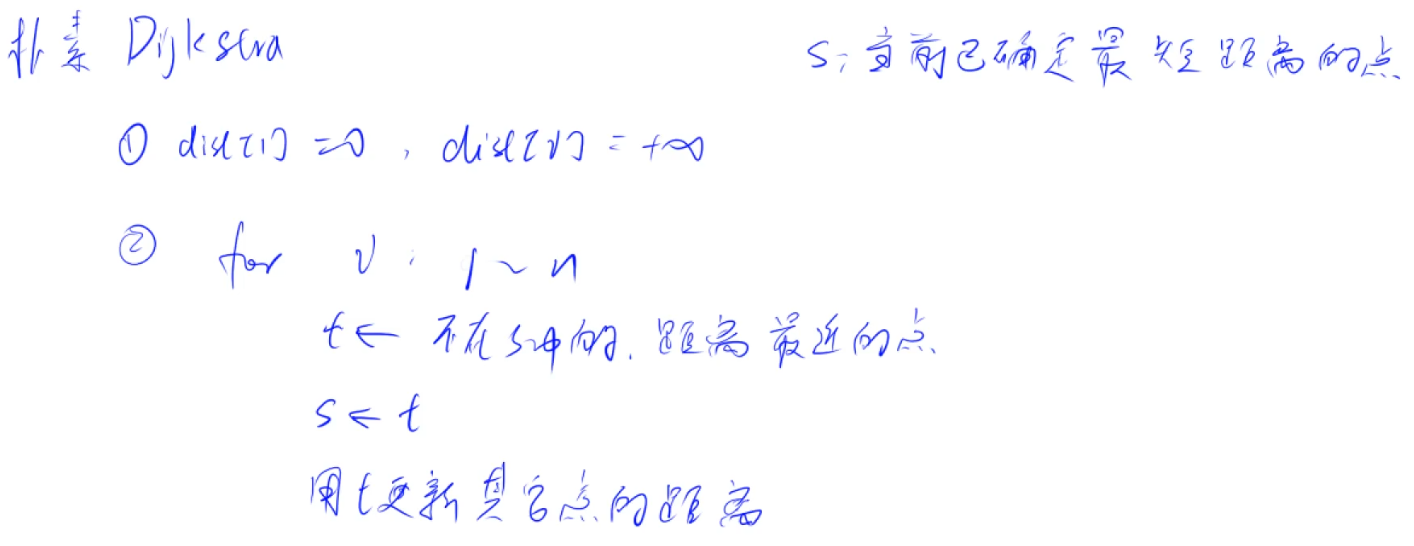 朴素 Dijkstra
s:当前已确定最短距离的点
① dist[1]=0, dist[v]=+∞
② for v: 1~n
t← 不在s中的,距离最近的点
s←t
用t更新其它点的距离